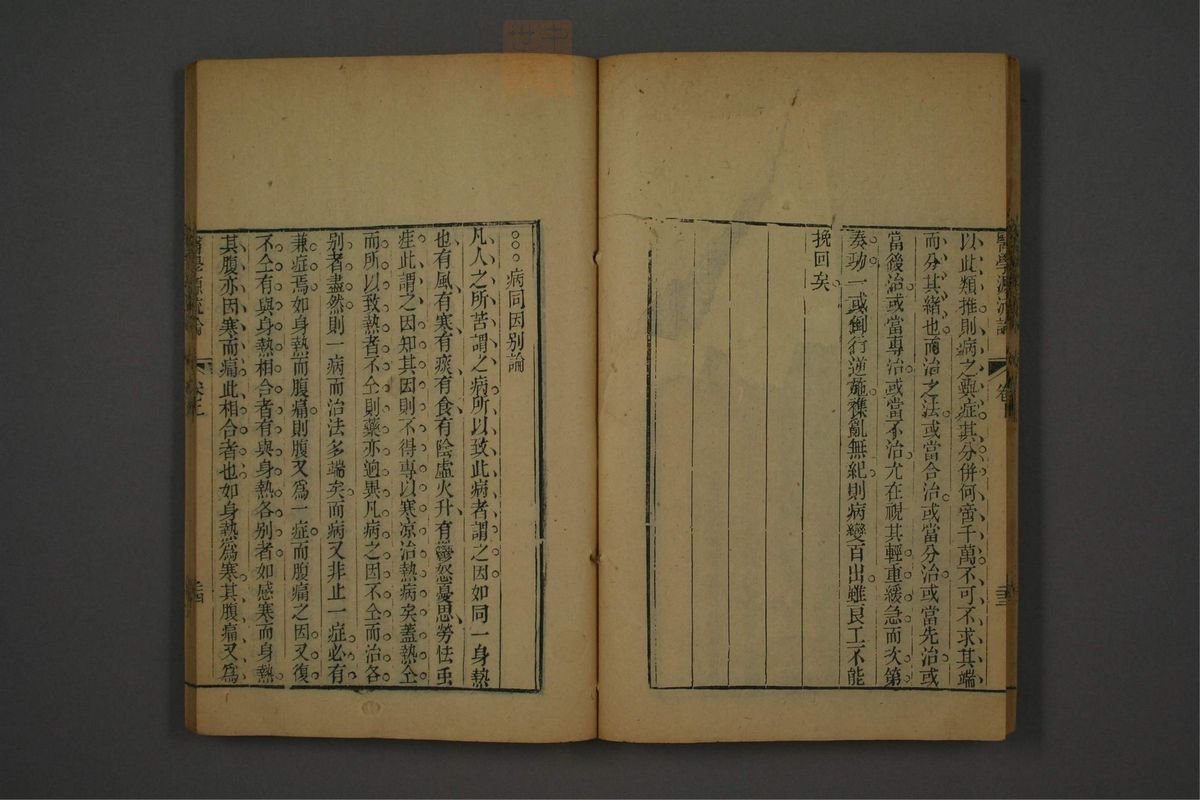 醫學源流論
卷
以此類推則病之與症其分併何啻千萬不可不求其端
而分其緒也而治之法或當合治或當分治或當先治或
當後治或當專治或當不治尤在視其輕重緩急而次第
奏功一或倒行逆施襍亂無紀則病變百出雖良工不能
挽回矣
病同因别論
凡人之所苦謂之病所以致此病者謂之因如同一身熱
也有風有寒有痰有食有陰虛火升有鬱怒憂思勞怯虫
疰此謂之因知其因則不得專以寒凉治熱病矣蓋熱仝
而所以致熱者不仝則藥亦逈異凡病之因不仝而治各
别者盡然則一病而治法多端矣而病又非止一症必有
兼症焉如身熱而腹痛則腹又爲一症而腹痛之因又復
不仝有與身熱相合者有與身熱各别者如感寒而身熱
其腹亦因寒而痛此相合者也如身熱爲寒其腹痛又爲
醫學源流論